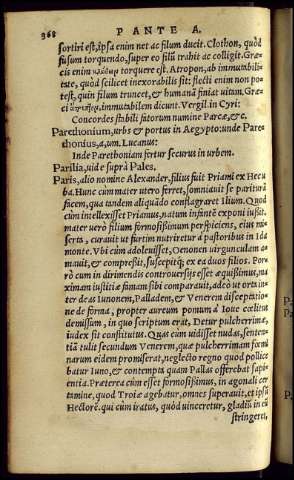 368 PANTE A.
sortiri est, ipsa enim net ac filum ducit. Clothon, quòd
fusum torquendo, super eo filũ trahit ac colligit. Græ
cis enim torquere est. Atropon, ab immutabili-
tate, quòd scilicet inexorabilis sit: flecti enim non po-
test, quin filum truncet, & humanã finiat uitam. Græ
ci immutabilem dicunt. Vergil. in Cyri:
Concordes stabili fatorum numine Parcæ, &c.
Parethonium, urbs & portus in Aegypto: unde Pare
thonius, a, um. Lucanus:
Inde Parethoniam fertur securus in urbem.
Parilia, uide suprà Pales.
Paris, alio nomine Alexander, filius fuit Priami ex Hecu
ba. Hunc cùm mater utero ferret, somniauit se pariturã
facem, qua tandem aliquãdo conflagraret Ilium. Quod
cùm intellexisset Prianus, natum infantẽ exponi iußit.
mater uerò filium formosißimum perspiciens, eius mi
serta, curauit ut furtim nutriretur à pastoribus in Ida
monte. Vbi cùm adoleuisset, Oenonen uirgunculam a-
mauit, & compreßit, suscepitq; ex ea duos filios. Por
rò cum in dirimendis controuersijs esset æquißimus, ma
ximam iustitiæ famam sibi comparauit, adeò ut orta in
ter deas Iunonem, Palladem, & Venerem disceptatio
ne de forma, propter aureum pomum à Ioue cœlitus
demissum, in quo scriptum erat, Detur pulcherrimæ,
iudex sit constitutus. Quas cùm uidisset nudas, senten-
tiã tulit secundum Venerem, quæ pulcherrimam foemi
narum eidem promiserat, neglecto regno quod pollice
batur Iuno, & contempta quam Pallas offerebat sapi
entia. Præterea cùm esset formosißimus, in agonali cer
tamine, quod Troiæ agebatur, omnes superauit, et ipsũ
Hectorẽ. qui cùm iratus, quòd uinceretur, gladiũ in eũ
stringeret,